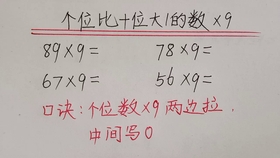 个位比十位大1的数×9
89×9= 78×9=
67×9= 56×9=
口诀:个位数×9两边拉,
中间写0